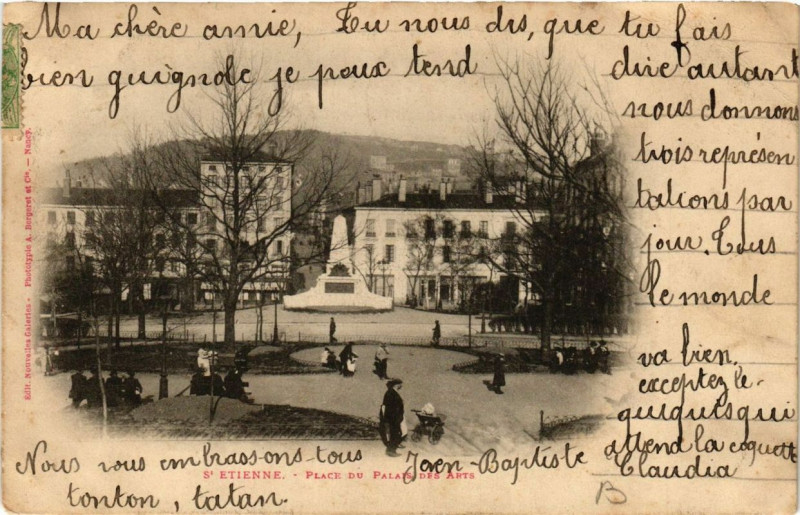 Ma chère amie, Tu nous dis, que tu fais
bien guignole je peux tend dire autant
nous donnons
trois représen
tations par
jour. Tous
le monde
va bien.
exceptez le
quiquis qui
attend la coquette
Claudia
Nous vous embrassons tous Jaen-Baptiste
tonton, tatan.
B
St ETIENNE. - PLACE DU PALAIS DES ARTS
Edit. Nouvelles Galeries - Phototypie A. Bergeret et Cie. — Nancy.